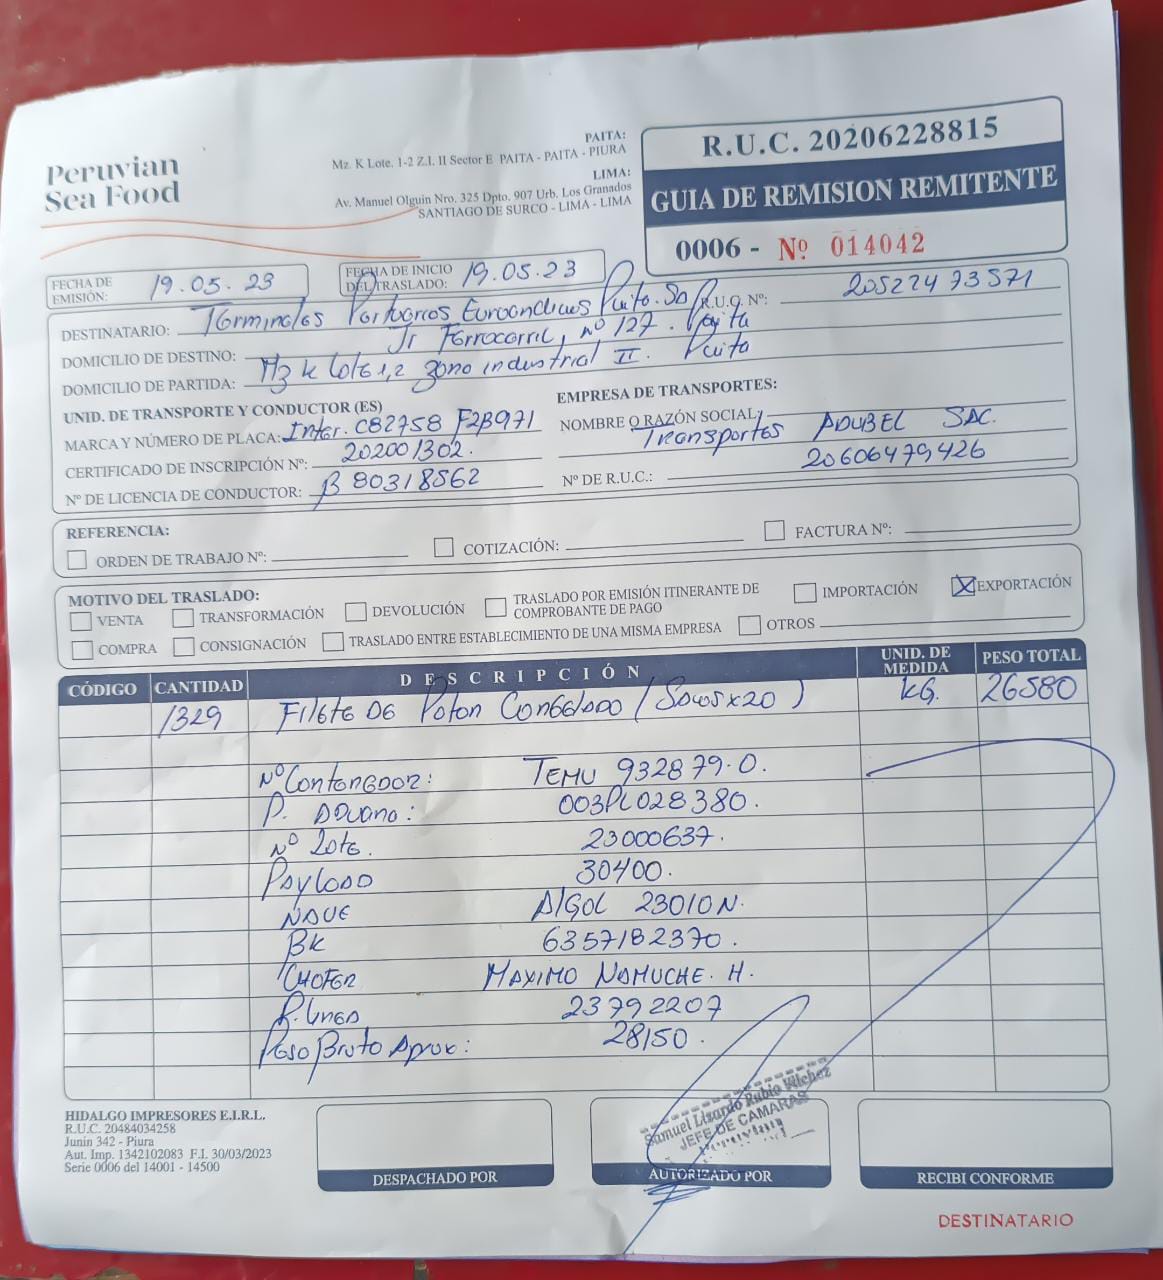 Peruvian
Sea Food
PAITA:
Mz. K Lote. 1-2 Z.I. II Sector E PAITA - PAITA - PIURA
LIMA:
Av. Manuel Olguin Nro. 325 Dpto. 907 Urb. Los Granados
SANTIAGO DE SURCO - LIMA - LIMA
R.U.C. 20206228815
GUIA DE REMISION REMITENTE
0006 - Nº 014042
FECHA DE EMISIÓN: 19.05.23
FECHA DE INICIO DEL TRASLADO: 19.05.23
DESTINATARIO: Terminales Portuarios Euroandinos Paita. Sa R.U.C. Nº: 20522473571
DOMICILIO DE DESTINO: Jr Ferrocarril, nº 127. Paita
DOMICILIO DE PARTIDA: Mz k lote 1,2 zona industrial II. Paita
UNID. DE TRANSPORTE Y CONDUCTOR (ES)
MARCA Y NÚMERO DE PLACA: Inter. C82758 F2B971
CERTIFICADO DE INSCRIPCIÓN Nº: 202001302.
Nº DE LICENCIA DE CONDUCTOR: B 80318562
EMPRESA DE TRANSPORTES:
NOMBRE O RAZÓN SOCIAL:
Transportes ADUBEL SAC.
Nº DE R.U.C.: 20606479426
REFERENCIA:
ORDEN DE TRABAJO Nº: COTIZACIÓN: FACTURA Nº:
MOTIVO DEL TRASLADO:
VENTA TRANSFORMACIÓN DEVOLUCIÓN TRASLADO POR EMISIÓN ITINERANTE DE COMPROBANTE DE PAGO IMPORTACIÓN X EXPORTACIÓN
COMPRA CONSIGNACIÓN TRASLADO ENTRE ESTABLECIMIENTO DE UNA MISMA EMPRESA OTROS
CÓDIGO CANTIDAD DESCRIPCIÓN UNID. DE MEDIDA PESO TOTAL
1329 Filete De Poton Congelado (Sacos x 20) KG. 26580
Nº Contenedor: TEMU 932879.0.
P. Aduana: 003PL028380.
Nº Lote. 23000637.
Payload 30400.
NAVE Algol 23010N.
BK 6357182370.
CHOFER MAXIMO NAMUCHE. H.
P. Linea 23792207
Peso Bruto Aprox: 28150.
HIDALGO IMPRESORES E.I.R.L.
R.U.C. 20484034258
Junin 342 - Piura
Aut. Imp. 1342102083 F.I. 30/03/2023
Serie 0006 del 14001 - 14500
DESPACHADO POR
Samuel Lizardo Rubio Vilchez
JEFE DE CAMARAS
AUTORIZADO POR
RECIBI CONFORME
DESTINATARIO